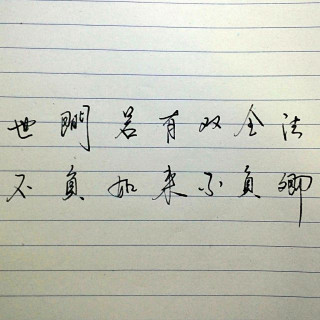 世间若有双全法
不负如来不负卿